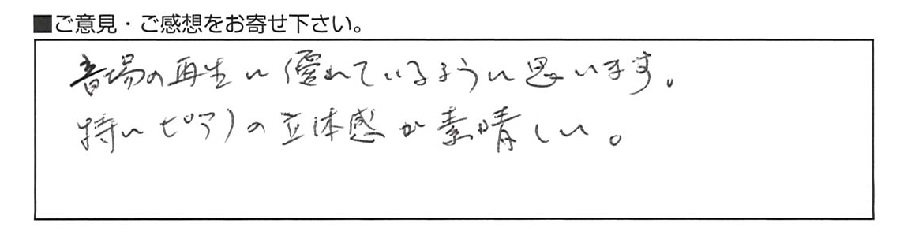 ■ご意見・ご感想をお寄せ下さい。
音場の再生に優れているように思います。
特にピアノの立体感が素晴しい。